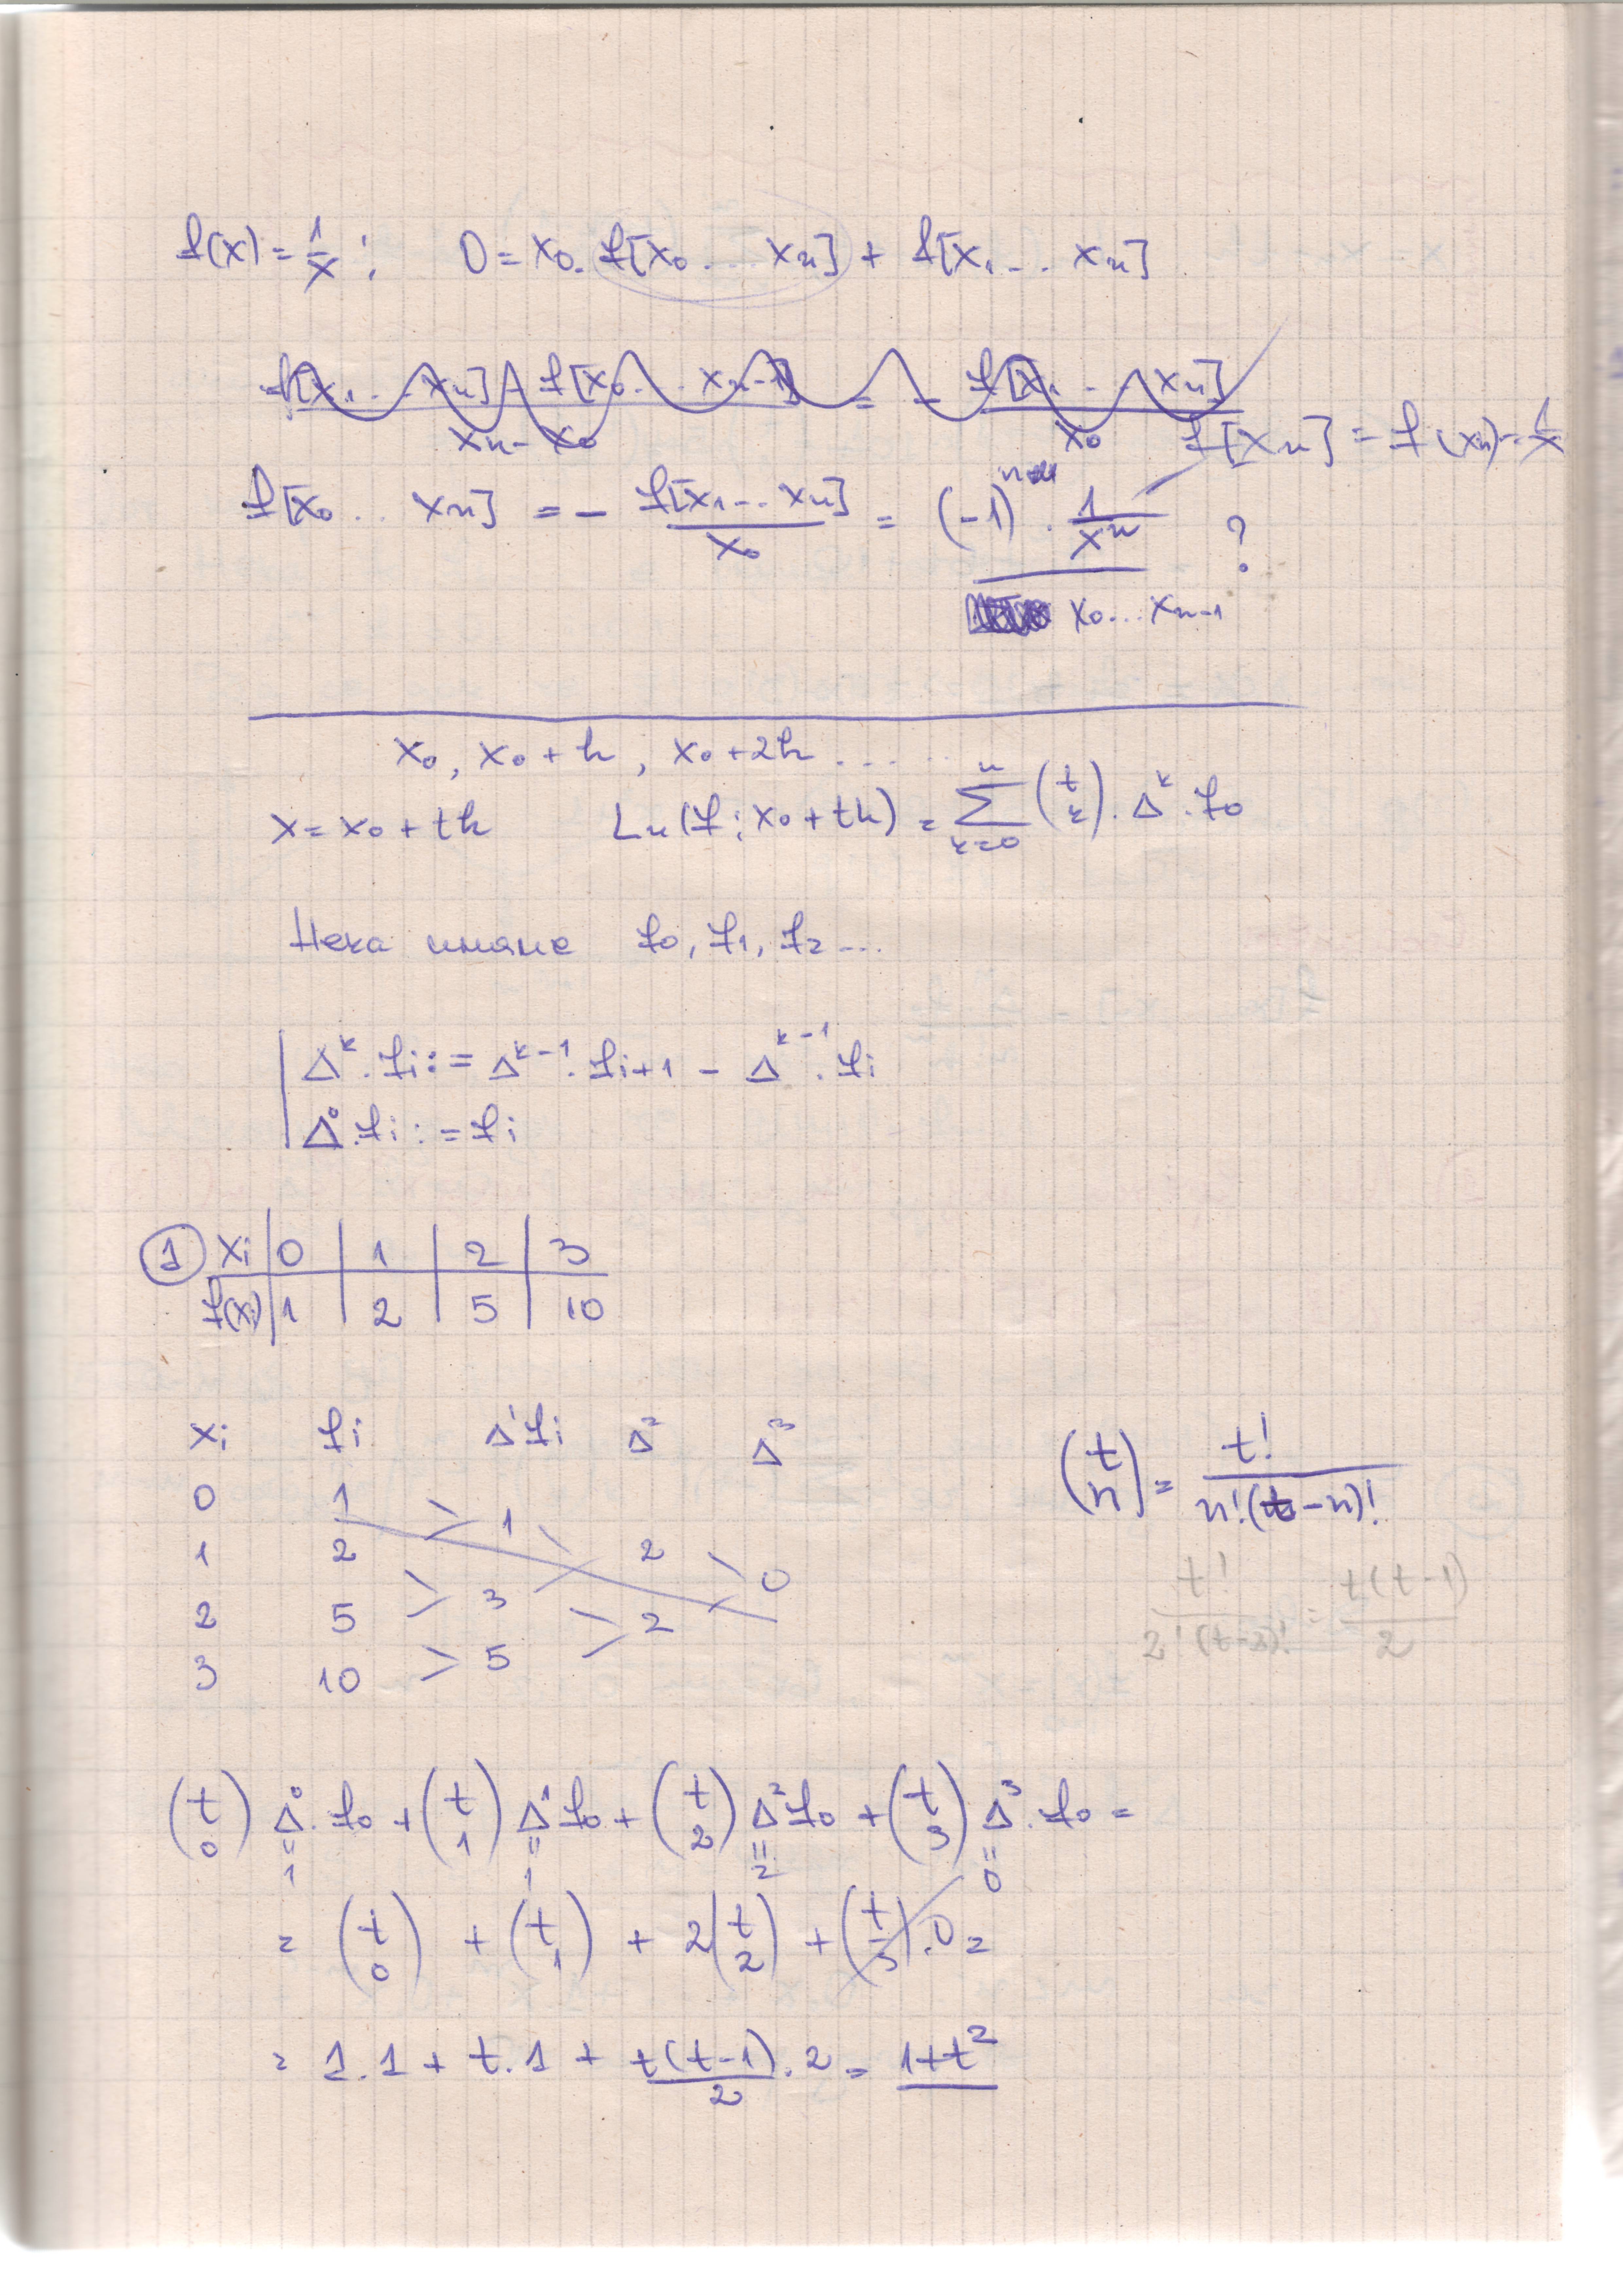 f(x) = 1/x ; 0 = x₀ . f[x₀ ... xₙ] + f[x₁ ... xₙ]
f[x₁ ... xₙ] - f[x₀ ... xₙ₋₁] / xₙ - x₀ = - f[x₁ ... xₙ] / x₀
f[xₙ] = f(xₙ) = 1/x
f[x₀ ... xₙ] = - f[x₁ ... xₙ] / x₀ = (-1)ⁿ . 1/xⁿ / x₀ ... xₙ₋₁ ?
x₀, x₀ + h, x₀ + 2h .....
x = x₀ + th Lₙ(f; x₀ + th) = Σₖ₌₀ⁿ (t k) . Δᵏ . f₀
Нека имаме f₀, f₁, f₂ ...
Δᵏ . fᵢ := Δᵏ⁻¹ . fᵢ₊₁ - Δᵏ⁻¹ . fᵢ
Δ⁰ . fᵢ := fᵢ
① xᵢ | 0 | 1 | 2 | 3
f(xᵢ) | 1 | 2 | 5 | 10
xᵢ fᵢ Δ¹fᵢ Δ² Δ³
0 1
1
1 2 2
3 0
2 5 2
5
3 10
(t n) = t! / n!(t-n)!
t! / 2!(t-2)! = t(t-1) / 2
(t 0) Δ⁰ . f₀ + (t 1) Δ¹ f₀ + (t 2) Δ² f₀ + (t 3) Δ³ . f₀ =
" 1 " 1 " 2 " 0
= (t 0) + (t 1) + 2(t 2) + (t 3) . 0 =
= 1.1 + t.1 + t(t-1)/2 . 2 = 1+t²